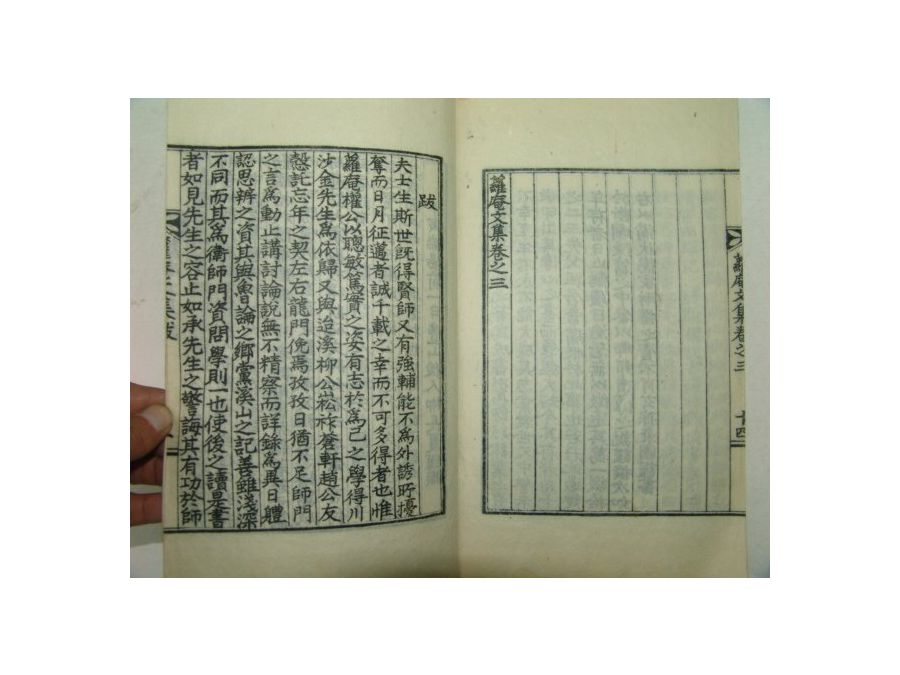 蘿庵文集卷之三
十四
蘿庵文集卷之三
跋
夫士生斯世旣得賢師又有強輔能不爲外誘所擾
奪而日月征邁者誠千載之幸而不可多得者也惟
蘿庵權公以聰敏篤實之姿有志於爲己之學得川
沙金先生爲依歸又與迨溪柳公崧祚蒼軒趙公友
慤託忘年之契左右龍門俛焉孜孜日猶不足師門
之言爲動止講討論說無不精察而詳錄爲異日體
認思辨之資其與魯論之鄕黨溪山之記善雖淺深
不同而其爲衛師門資問學則一也使後之讀是書
者如見先生之容止如承先生之警誨其有功於師
蘿庵文集跋